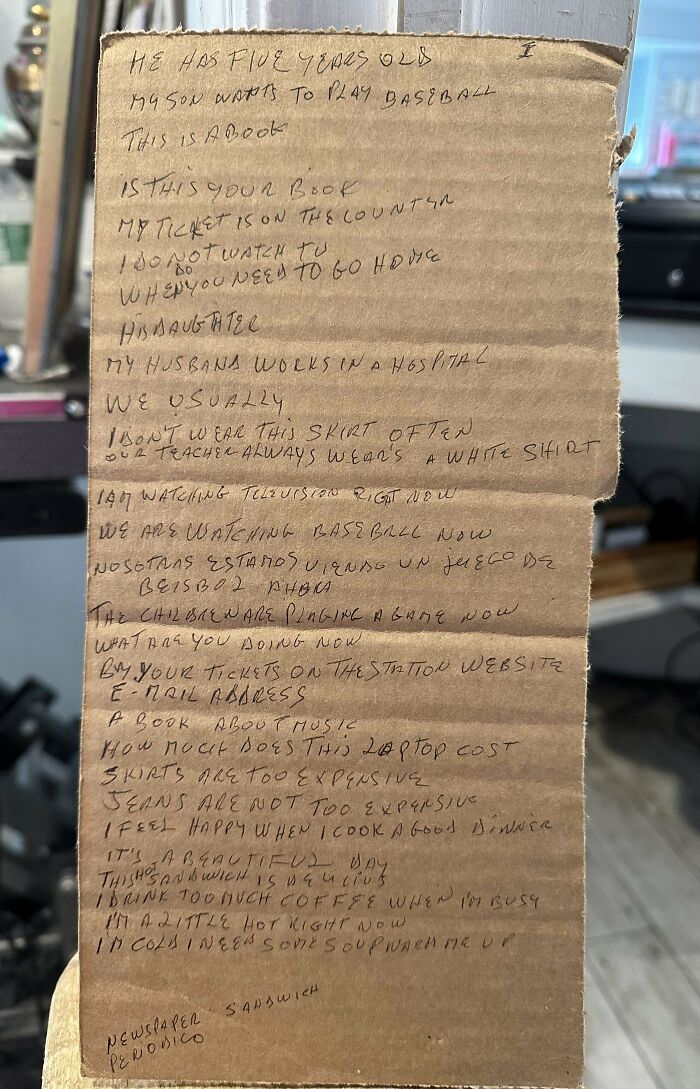 I
HE HAS FIVE YEARS OLD
MY SON WANTS TO PLAY BASEBALL
THIS IS A BOOK
IS THIS YOUR BOOK
MY TICKET IS ON THE COUNTER
I DO NOT WATCH TV
WHEN DO YOU NEED TO GO HOME
HIS DAUGHTER
MY HUSBAND WORKS IN A HOSPITAL
WE USUALLY
I DON'T WEAR THIS SKIRT OFTEN
OUR TEACHER ALWAYS WEARS A WHITE SHIRT
I AM WATCHING TELEVISION RIGHT NOW
WE ARE WATCHING BASEBALL NOW
NOSOTRAS ESTAMOS VIENDO UN JUEGO DE
BEISBOL AHORA
THE CHILDREN ARE PLAYING A GAME NOW
WHAT ARE YOU DOING NOW
BUY YOUR TICKETS ON THE STATION WEBSITE
E-MAIL ADDRESS
A BOOK ABOUT MUSIC
HOW MUCH DOES THIS LAPTOP COST
SKIRTS ARE TOO EXPENSIVE
JEANS ARE NOT TOO EXPENSIVE
I FEEL HAPPY WHEN I COOK A GOOD DINNER
IT'S A BEAUTIFUL DAY
THIS HOT SANDWICH IS DELICIUS
I DRINK TOO MUCH COFFEE WHEN I'M BUSY
I'M A LITTLE HOT RIGHT NOW
I'M COLD I NEED SOME SOUP WARM ME UP
SANDWICH
NEWSPAPER
PERIODICO